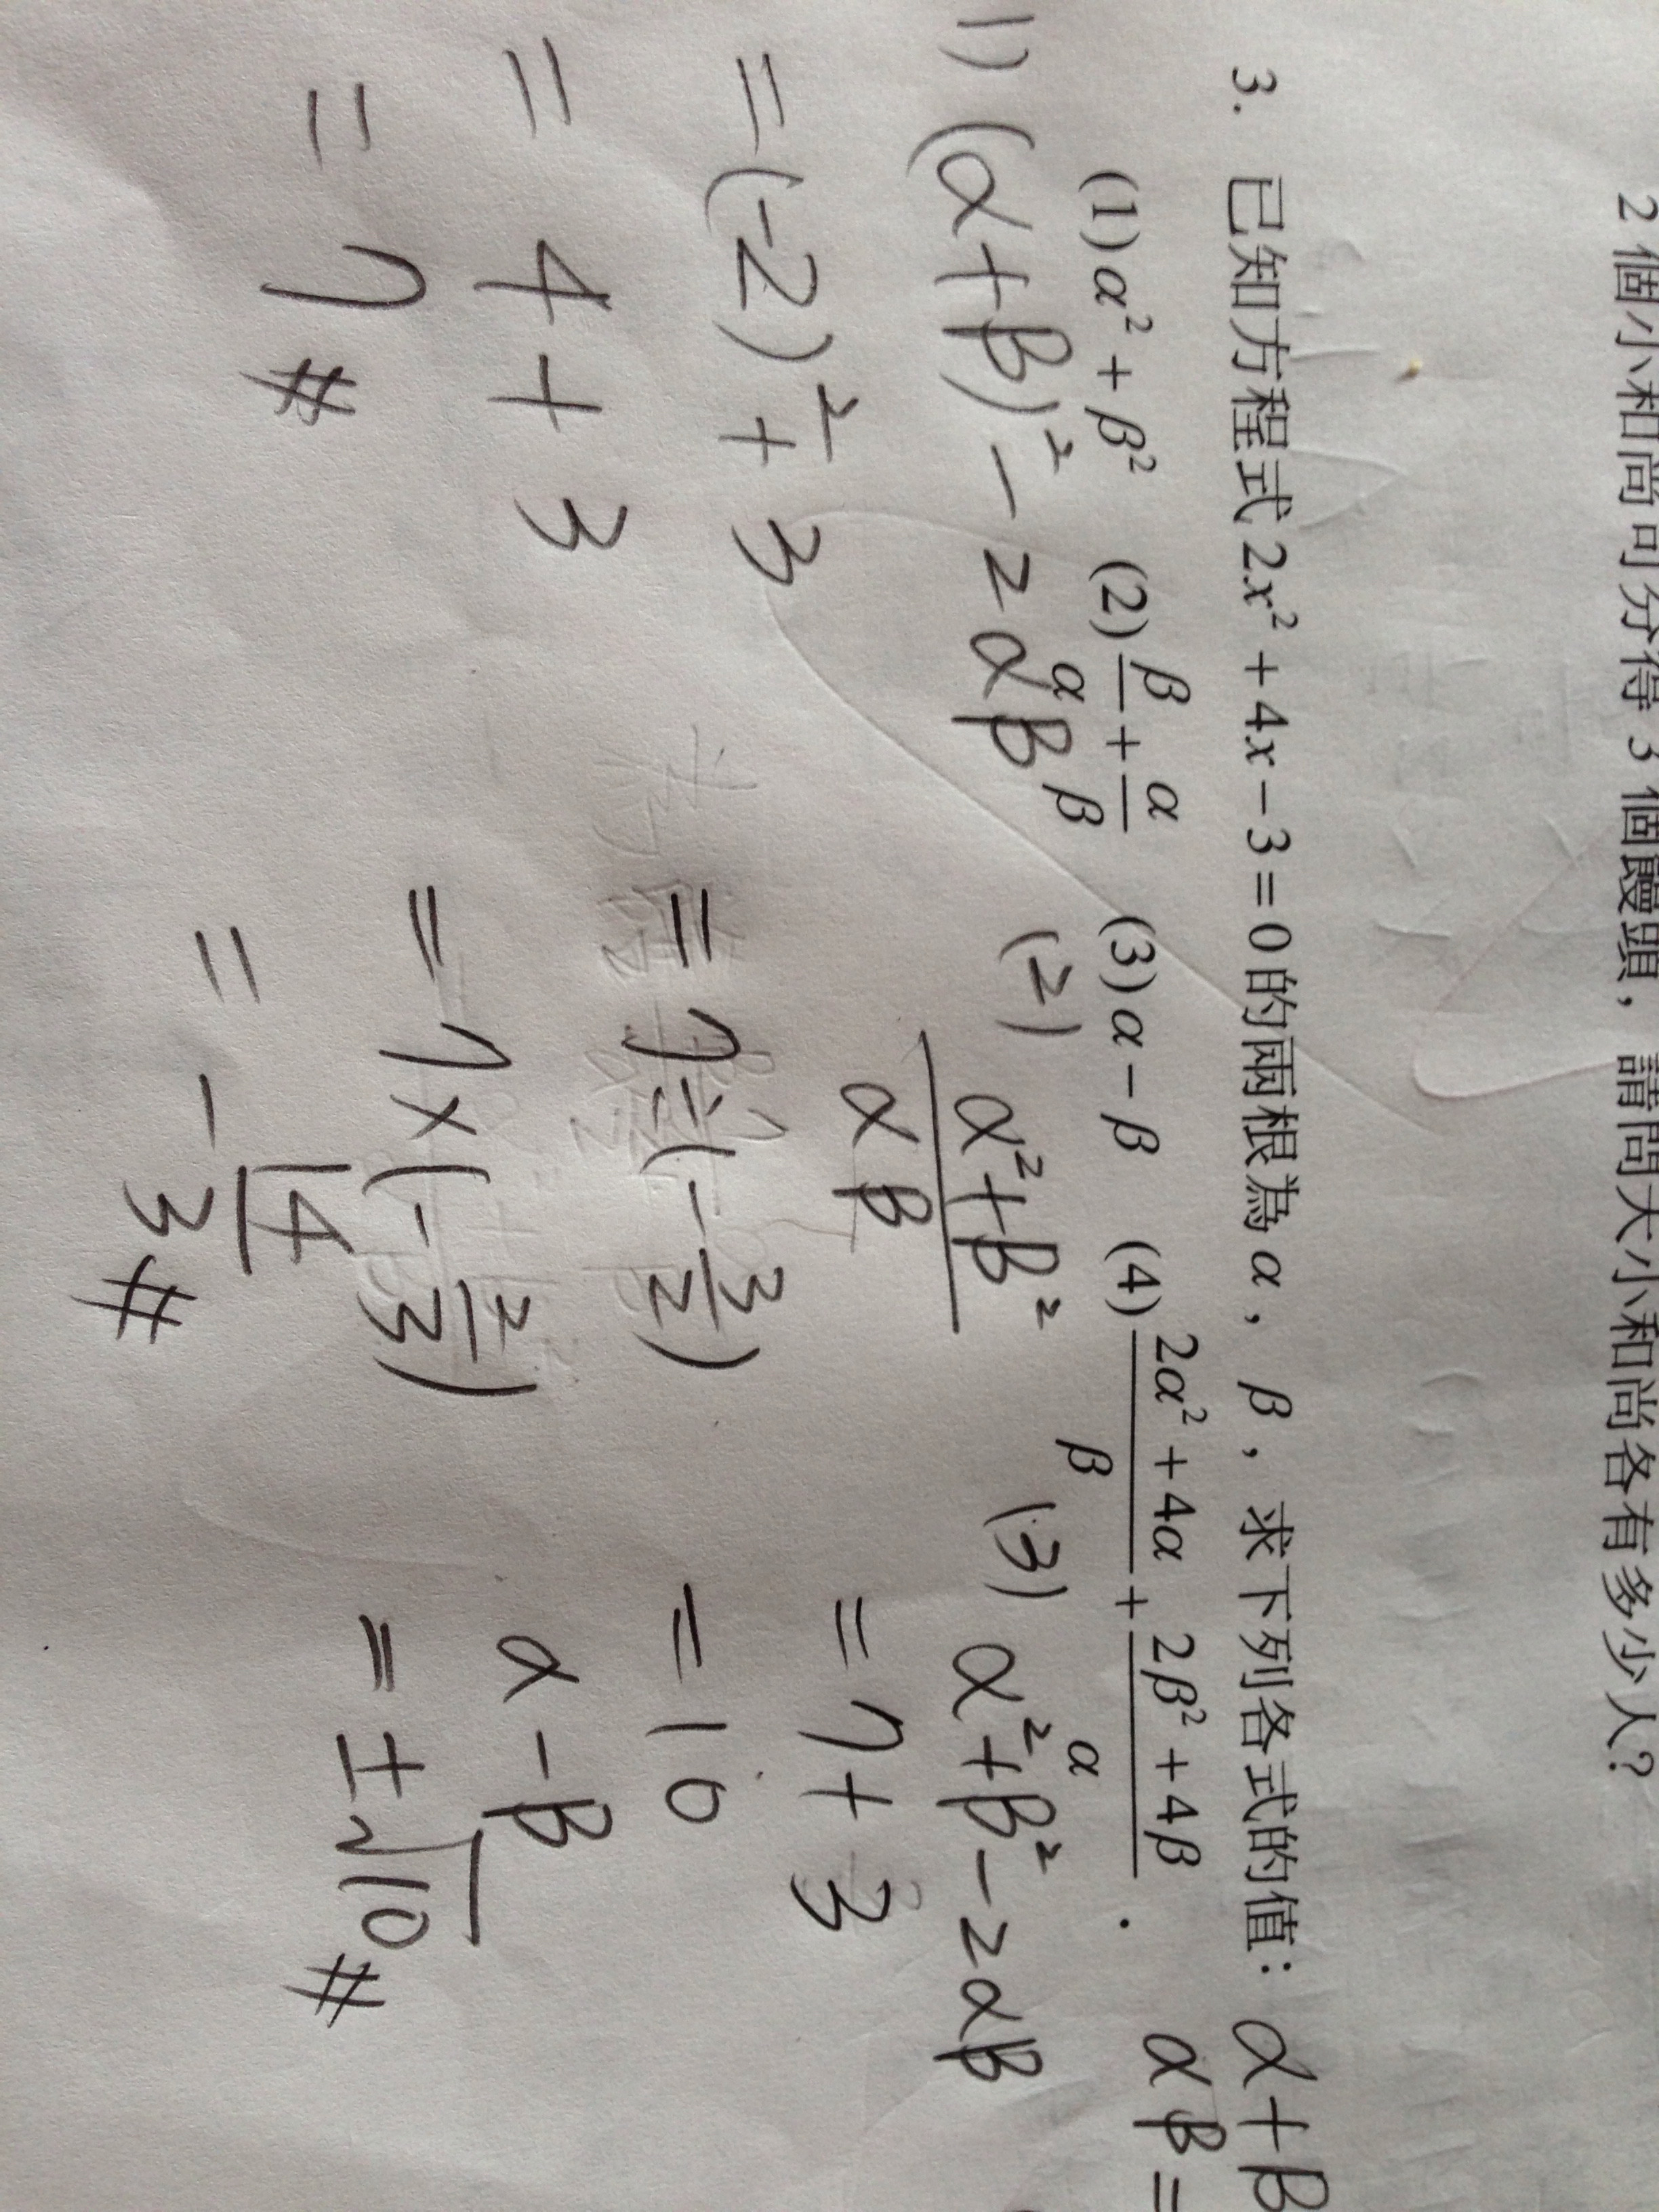 2 個小和尚可分得 3 個饅頭，請問大小和尚各有多少人?
3. 已知方程式 2x² + 4x − 3 = 0 的兩根為 α，β，求下列各式的值： α+β
(1) α² + β² (2) β/α + α/β (3) α − β (4) (2α² + 4α)/β + (2β² + 4β)/α . αβ =
1) (α+β)² − 2αβ
= (-2)² + 3
= 4 + 3
= 7 #
(2) (α²+β²)/(αβ)
= 7 ÷ (-3/2)
= 7 × (-2/3)
= -14/3 #
(3) α²+β² − 2αβ
= 7 + 3
= 10
α − β
= ±√10 #